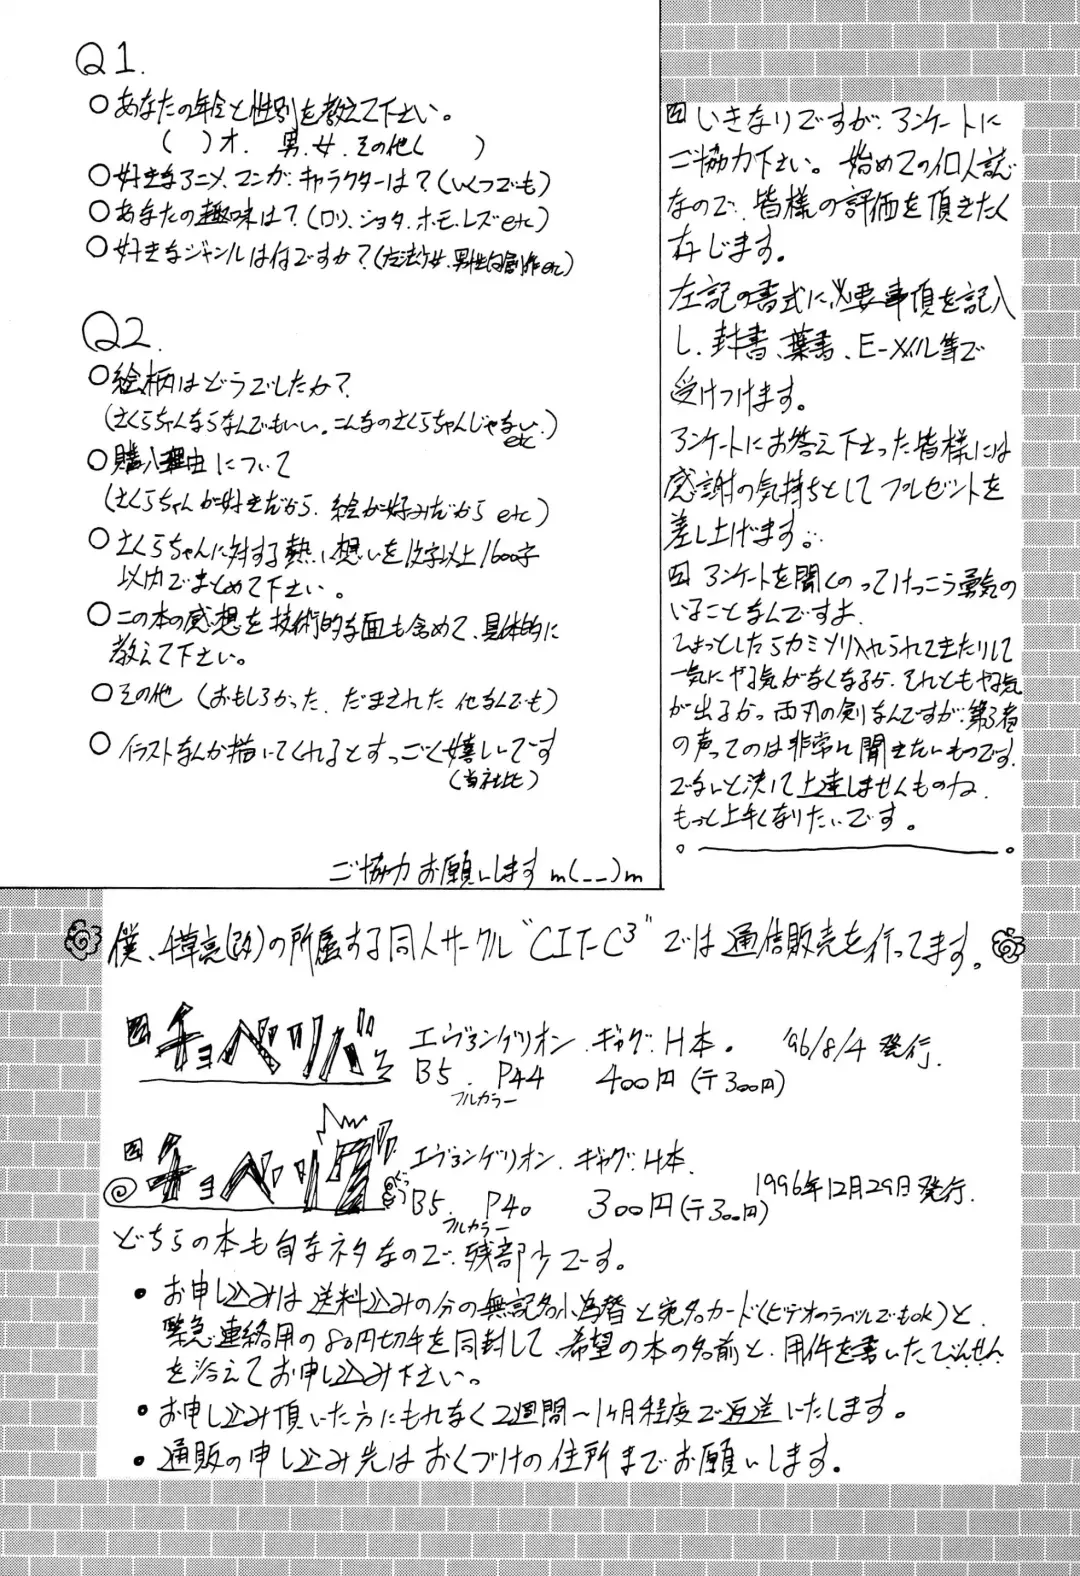 Q1.
○あなたの年令と性別を教えて下さい。
( )才. 男.女.その他( )
○好きなアニメ、マンガ.キャラクターは?(いくつでも)
○あなたの趣味は?(ロリ.ショタ.ホモ.レズetc)
○好きなジャンルは何ですか?(
Q2.
○絵柄はどうでしたか?
(さくらちゃんならなんでもいい。こんなのさくらちゃんじゃない.)
etc
○購入理由について
(さくらちゃんが好きだから.絵が好みだから etc)
○さくらちゃんに対する熱い想いを1文字以上1600字
以内でまとめて下さい。
○この本の感想を技術的な面も含めて、具体的に
教えて下さい。
○その他 (おもしろかった.だまされた 他なんでも)
○イラストなんか描いてくれるとすっごく嬉しいです
(当社比)
ご協力お願いします m(__)m
いきなりですが、アンケートに
ご協力下さい。始めての個人誌
なので、皆様の評価を頂きたく
存じます。
左記の書式に必要事項を記入
し.封書、葉書、E-メイル等で
受けつけます。
アンケートにお答え下さった皆様には
感謝の気持ちとしてプレゼントを
差し上げます。
アンケートを聞くのってけっこう勇気の
いることなんですよ.
ひょっとしたらカミソリ入れられてきたりして
一気にやる気がなくなるか.それともやる気
が出るか。両刃の剣なんですが、第3者
の声ってのは非常に聞きたいものです.
でないと決して上達しませんものね.
もっと上手くなりたいです。
僕、の所属する同人サークル"CIT-C³"では通信販売を行ってます。
チョベリバ
エヴァンゲリオン.ギャグ.H本。 '96/8/4 発行.
B5. P44 400円(〒300円)
フルカラー
チョベリグ
エヴァンゲリオン.ギャグ.H本.
1996年12月29日発行.
B5. P40 300円(〒300円)
フルカラー
どちらの本も旬なネタなので、残部少です。
・お申し込みは送料込みの分の無記名小為替と宛名カード(ビデオのラベルでもok)と.
緊急連絡用の80円切手を同封して、希望の本の名前と、用件を書いたびんせん
を添えてお申し込み下さい。
・お申し込み頂いた方にもれなく2週間〜1ヶ月程度で返送いたします。
・通販の申し込み先はおくづけの住所までお願いします.